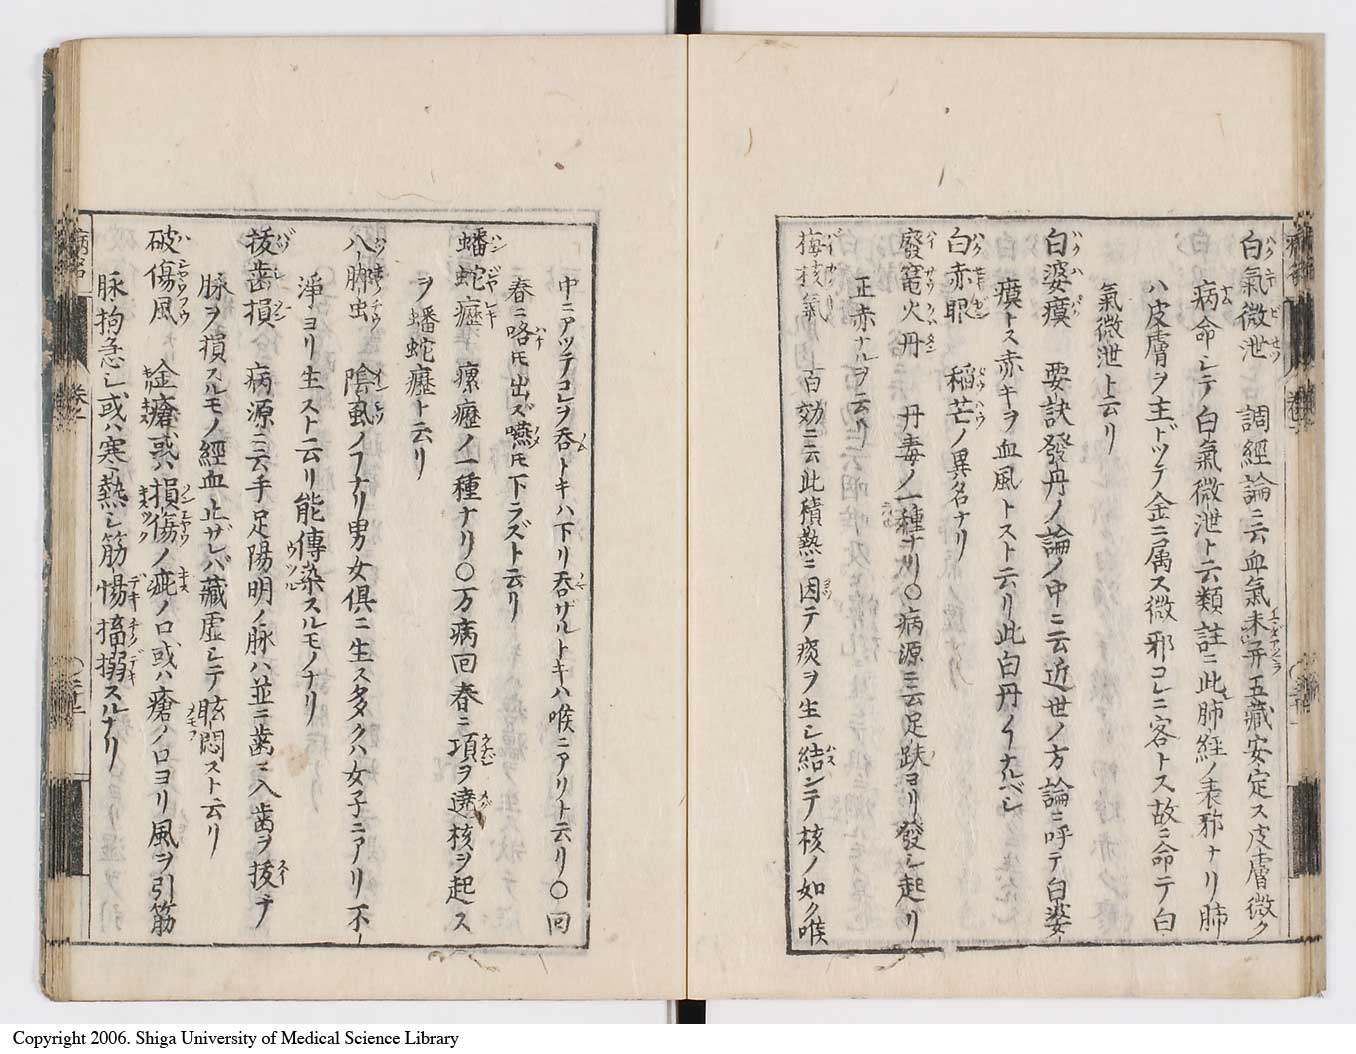 白氣微泄 調經論ニ云血氣未并五藏安定ス皮膚微ク
病命シテ白氣微泄ト云類註ニ此肺經ノ表邪ナリ肺
ハ皮膚ヲ主ドツテ金ニ属ス微邪コレニ客トス故ニ命テ白
氣微泄ト云リ
白婆瘼 要訣發丹ノ論ノ中ニ云近世ノ方論ニ呼テ白婆
瘼トス赤キヲ血風トスト云リ此白丹ノヿナルベシ
白赤眼 稲芒ノ異名ナリ
廢竃火丹 丹毒ノ一種ナリ〇病源ニ云足趺ヨリ發シ起リ
正赤ナルヲ云リ
梅核氣 百効ニ云此積熱ニ因テ痰ヲ生シ結ンデ核ノ如ク喉
中ニアツテコレヲ呑トキハ下リ呑ザルトキハ喉ニアリト云リ〇回
春ニ咯モ出ズ嚥モ下ラズト云リ
蟠蛇癧 瘰癧ノ一種ナリ〇万病回春ニ項ヲ遶核ヲ起ス
ヲ蟠蛇癧ト云リ
八脚虫 陰虱ノヿナリ男女俱ニ生ス多クハ女子ニアリ不
淨ヨリ生スト云リ能傳染スルモノナリ
拔齒損 病源ニ云手足陽明ノ脉ハ並ニ齒ニ入齒ヲ拔テ
脉ヲ損スルモノ經血止ザレバ藏虚シテ眩悶スト云リ
破傷風 金瘡或ハ損傷ノ疵ノ口或ハ瘡ノ口ヨリ風ヲ引筋
脉拘急シ或ハ寒熱シ筋惕搐搦スルナリ